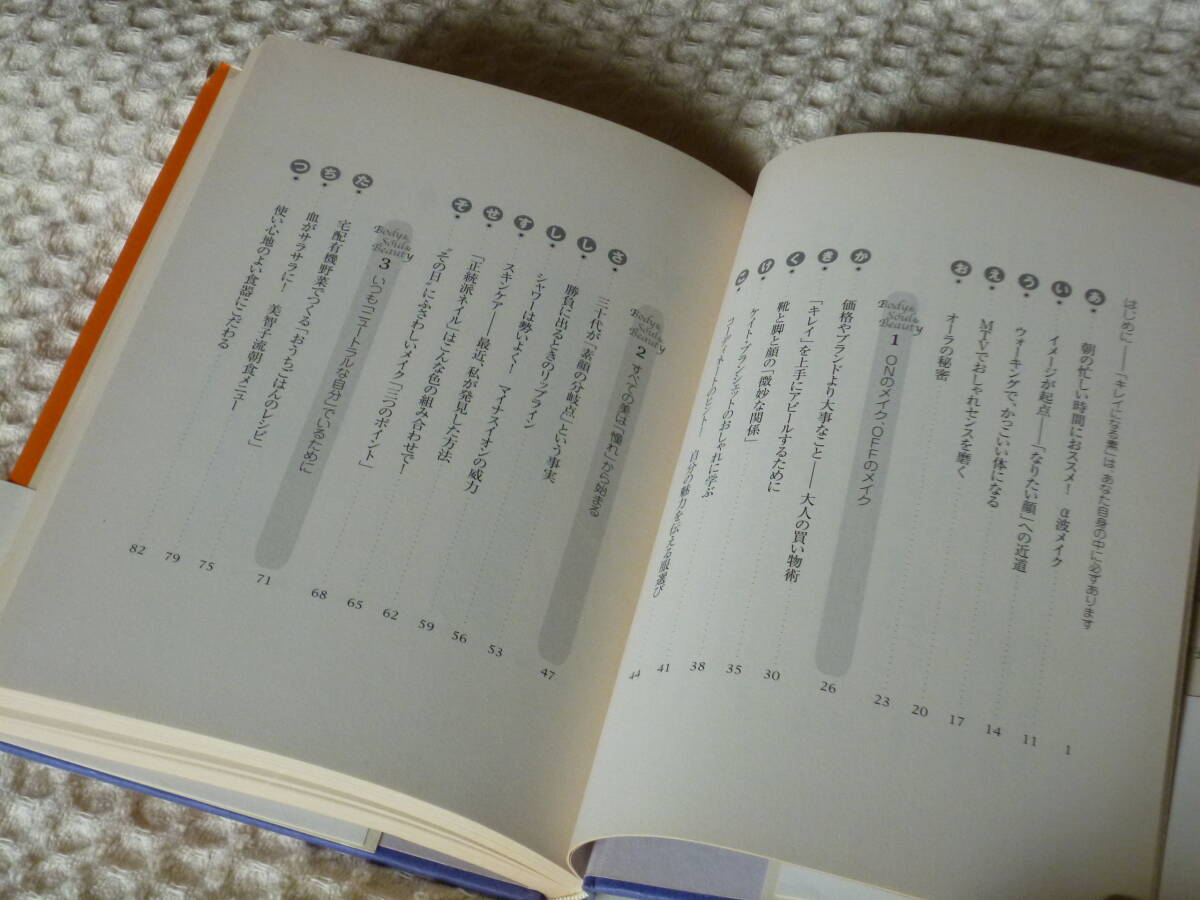 はじめに――「キレイになる素」は あなた自身の中に必ずあります 1
あ 朝の忙しい時間におススメ! α波メイク 11
い イメージが起点――「なりたい顔」への近道 14
う ウォーキングで、かっこいい体になる 17
え MTVでおしゃれセンスを磨く 20
お オーラの秘密 23
Body & Soul & Beauty 1 ONのメイク、OFFのメイク 26
か 価格やブランドより大事なこと――大人の買い物術 30
き 「キレイ」を上手にアピールするために 35
く 靴と脚と顔の「微妙な関係」 38
け ケイト・ブランシェットのおしゃれに学ぶ 41
こ コーディネートのヒント――自分の魅力を伝える服選び 44
Body & Soul & Beauty 2 すべての美は「憧れ」から始まる 47
さ 三十代が「素顔の分岐点」という事実 53
し 勝負に出るときのリップライン 56
し シャワーは勢いよく! マイナスイオンの威力 59
す スキンケア――最近、私が発見した方法 62
せ 「正統派ネイル」はこんな色の組み合わせで! 65
そ “その日”にふさわしいメイク「三つのポイント」 68
Body & Soul & Beauty 3 いつも「ニュートラルな自分」でいるために 71
た 宅配有機野菜でつくる「おうちごはんのレシピ」 75
ち 血がサラサラに! 美智子流朝食メニュー 79
つ 使い心地のよい食器にこだわる 82